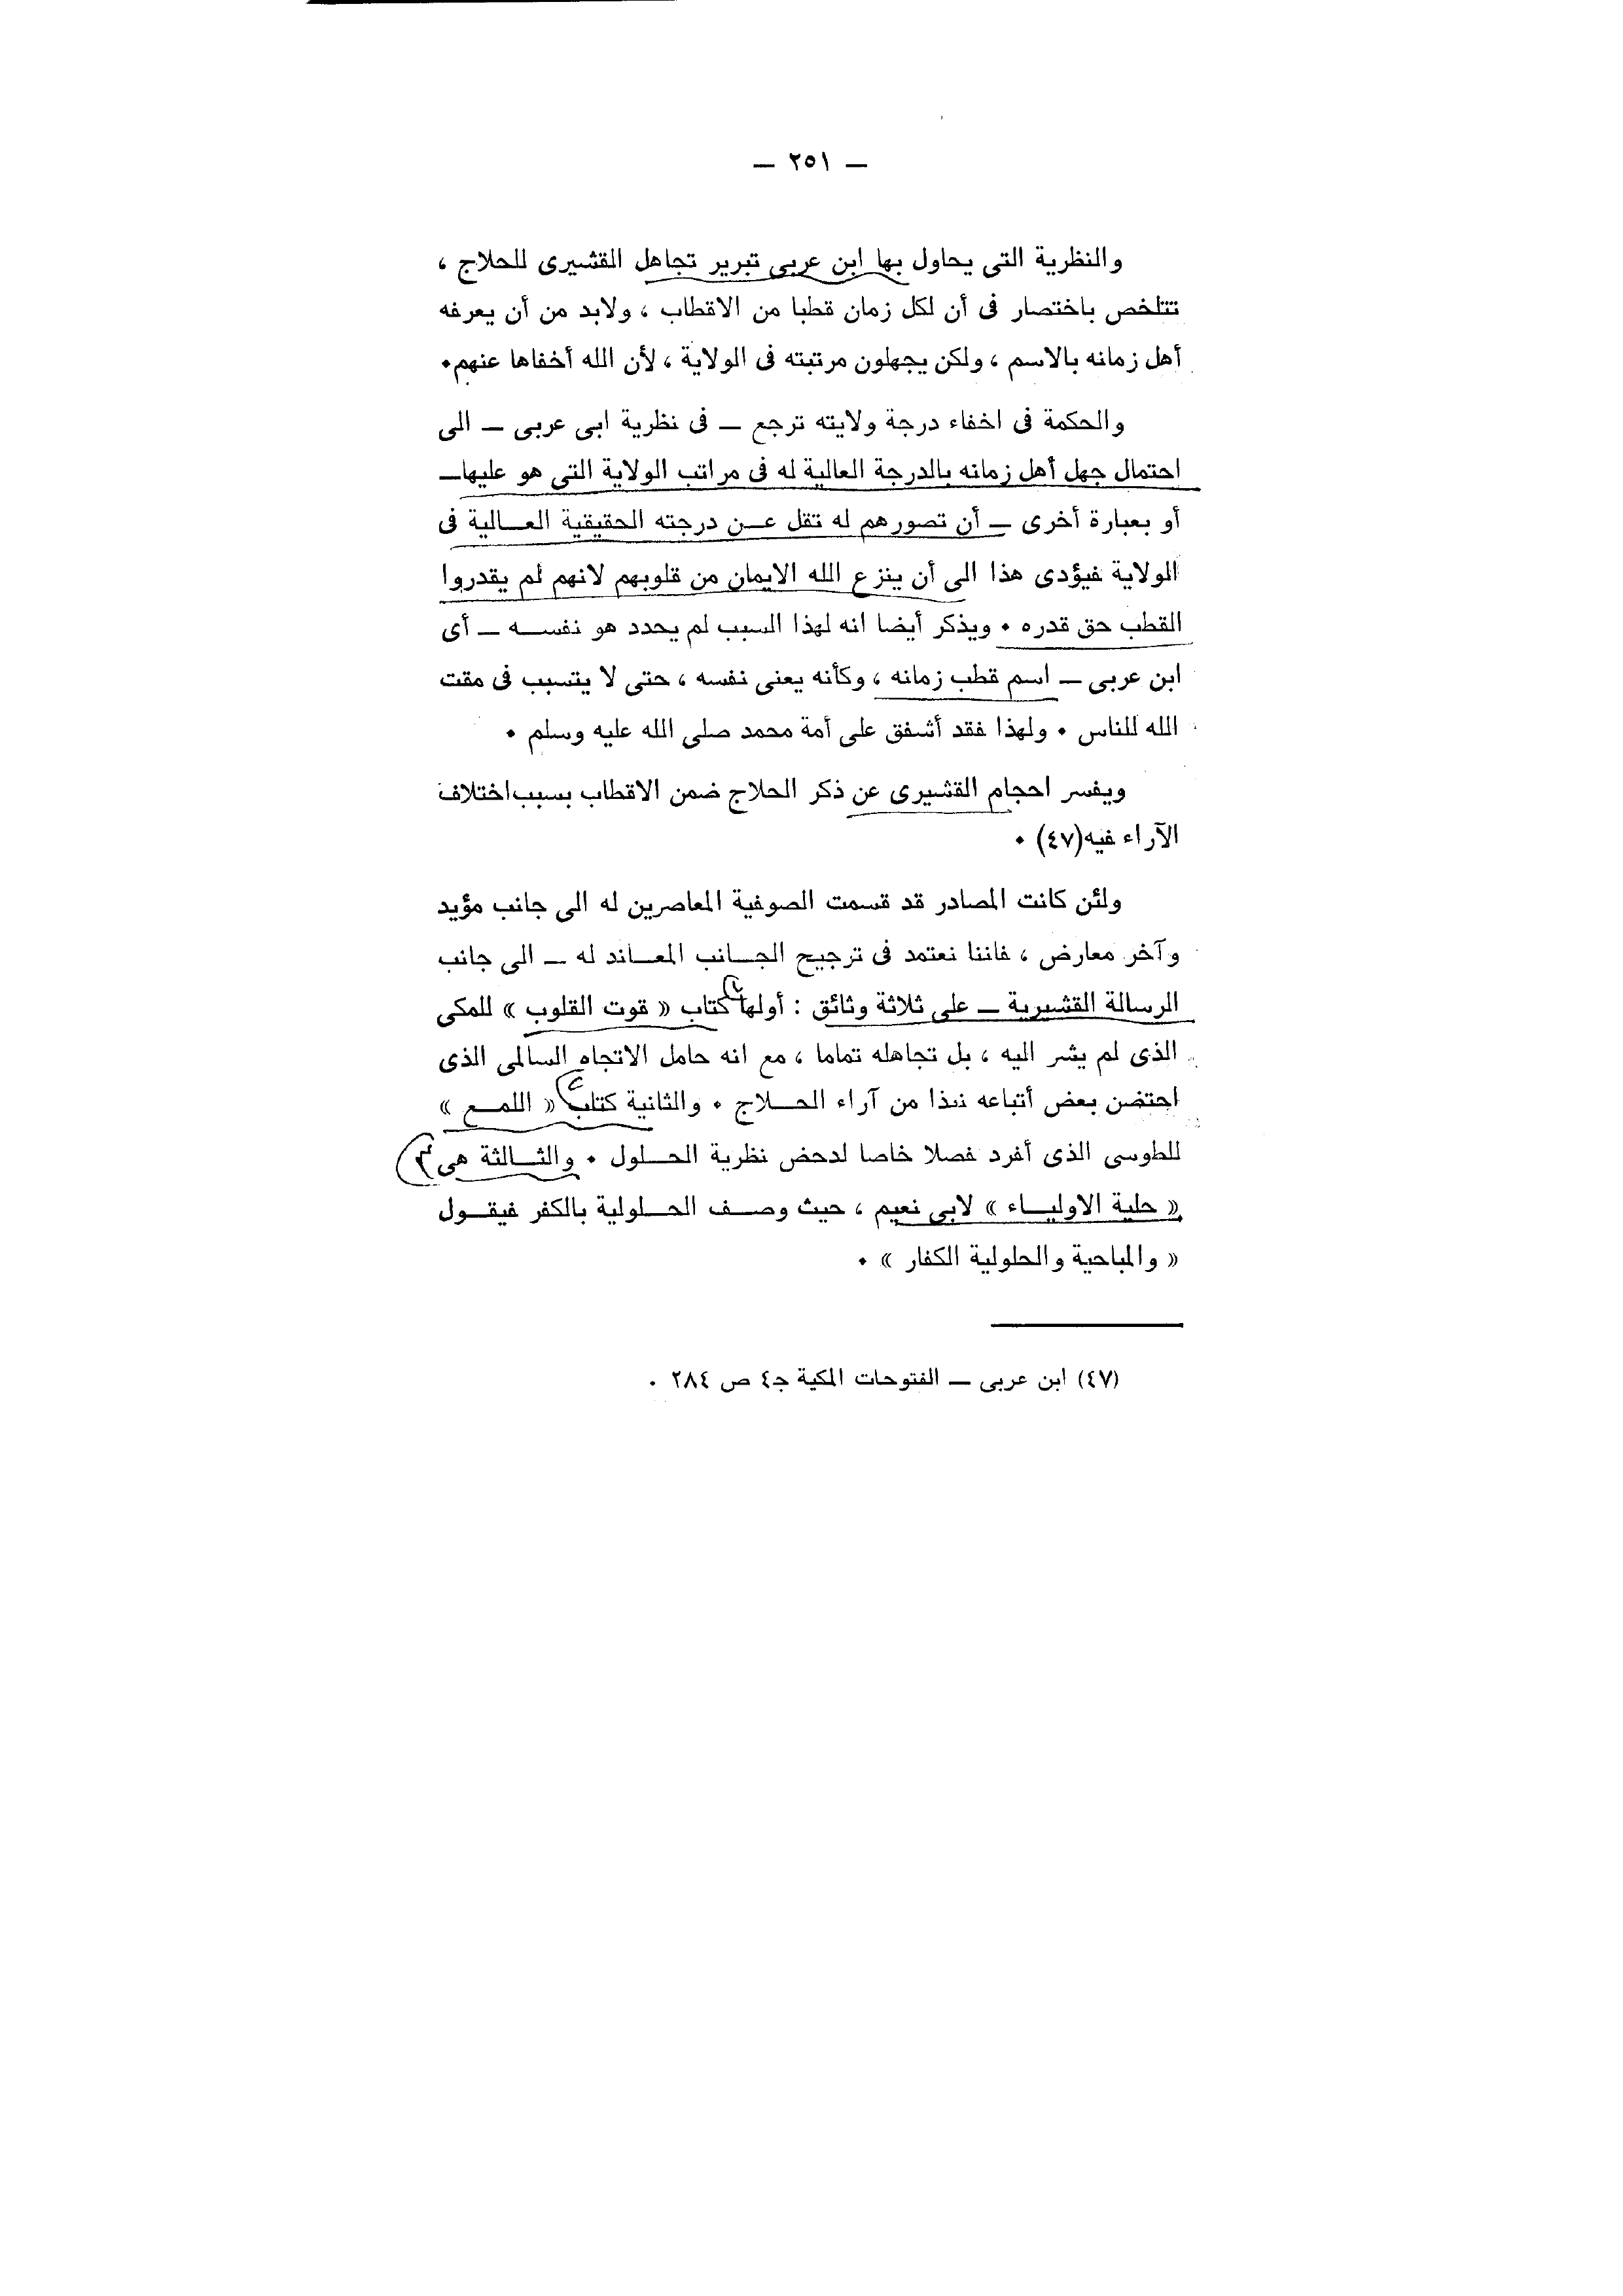 — ٢٥١ —
والنظرية التى يحاول بها ابن عربى تبرير تجاهل القشيرى للحلاج ،
تتلخص باختصار فى أن لكل زمان قطبا من الاقطاب ، ولابد من أن يعرفه
أهل زمانه بالاسم ، ولكن يجهلون مرتبته فى الولاية ، لأن الله أخفاها عنهم٠
والحكمة فى اخفاء درجة ولايته ترجع — فى نظرية ابى عربى — الى
احتمال جهل أهل زمانه بالدرجة العالية له فى مراتب الولاية التى هو عليها—
أو بعبارة أخرى — أن تصورهم له تقل عـن درجته الحقيقية العـالية فى
الولاية فيؤدى هذا الى أن ينزع الله الايمان من قلوبهم لانهم لم يقدروا
القطب حق قدره ٠ ويذكر أيضا انه لهذا السبب لم يحدد هو نفسـه — أى
ابن عربى — اسم قطب زمانه ، وكأنه يعنى نفسه ، حتى لا يتسبب فى مقت
الله للناس ٠ ولهذا فقد أشفق على أمة محمد صلى الله عليه وسلم ٠
ويفسر احجام القشيرى عن ذكر الحلاج ضمن الاقطاب بسبب اختلاف
الآراء فيه(٤٧) ٠
ولئن كانت المصادر قد قسمت الصوفية المعاصرين له الى جانب مؤيد
وآخر معارض ، فاننا نعتمد فى ترجيح الجـانب المعـاند له — الى جانب
الرسالة القشيرية — على ثلاثة وثائق : أولها كتاب « قوت القلوب » للمكى
الذى لم يشر اليه ، بل تجاهله تماما ، مع انه حامل الاتجاه السالمى الذى
احتضن بعض أتباعه نبذا من آراء الحـلاج ٠ والثانية كتاب « اللمـع »
للطوسى الذى أفرد فصلا خاصا لدحض نظرية الحـلول ٠ والثـالثة هى ٣
« حلية الاوليـاء » لابى نعيم ، حيث وصـف الحـلولية بالكفر فيقـول
« والمباحية والحلولية الكفار » ٠
(٤٧) ابن عربى — الفتوحات المكية جـ٤ ص ٢٨٤ ٠